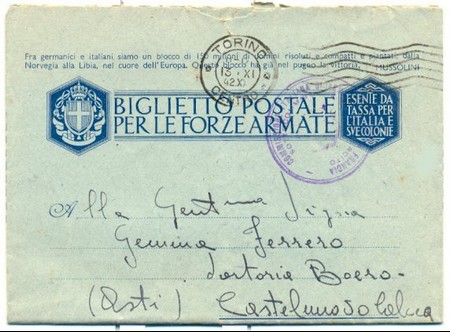 Fra germanici e italiani siamo un blocco di 150 milioni di uomini risoluti e compatti e piantati dalla
Norvegia alla Libia, nel cuore dell'Europa. Questo blocco ha già nel pugno la vittoria. MUSSOLINI
TORINO
13 XI
42.XXI
CENTRO
BIGLIETTO POSTALE
PER LE FORZE ARMATE
ESENTE DA
TASSA PER
L'ITALIA E
SVE COLONIE
COMMISSIONE
FRANCIA
Alla Gent.ma Sig.na
Gemma Ferrero
Sartoria Boero
(Asti) Castelnuovo Calcea